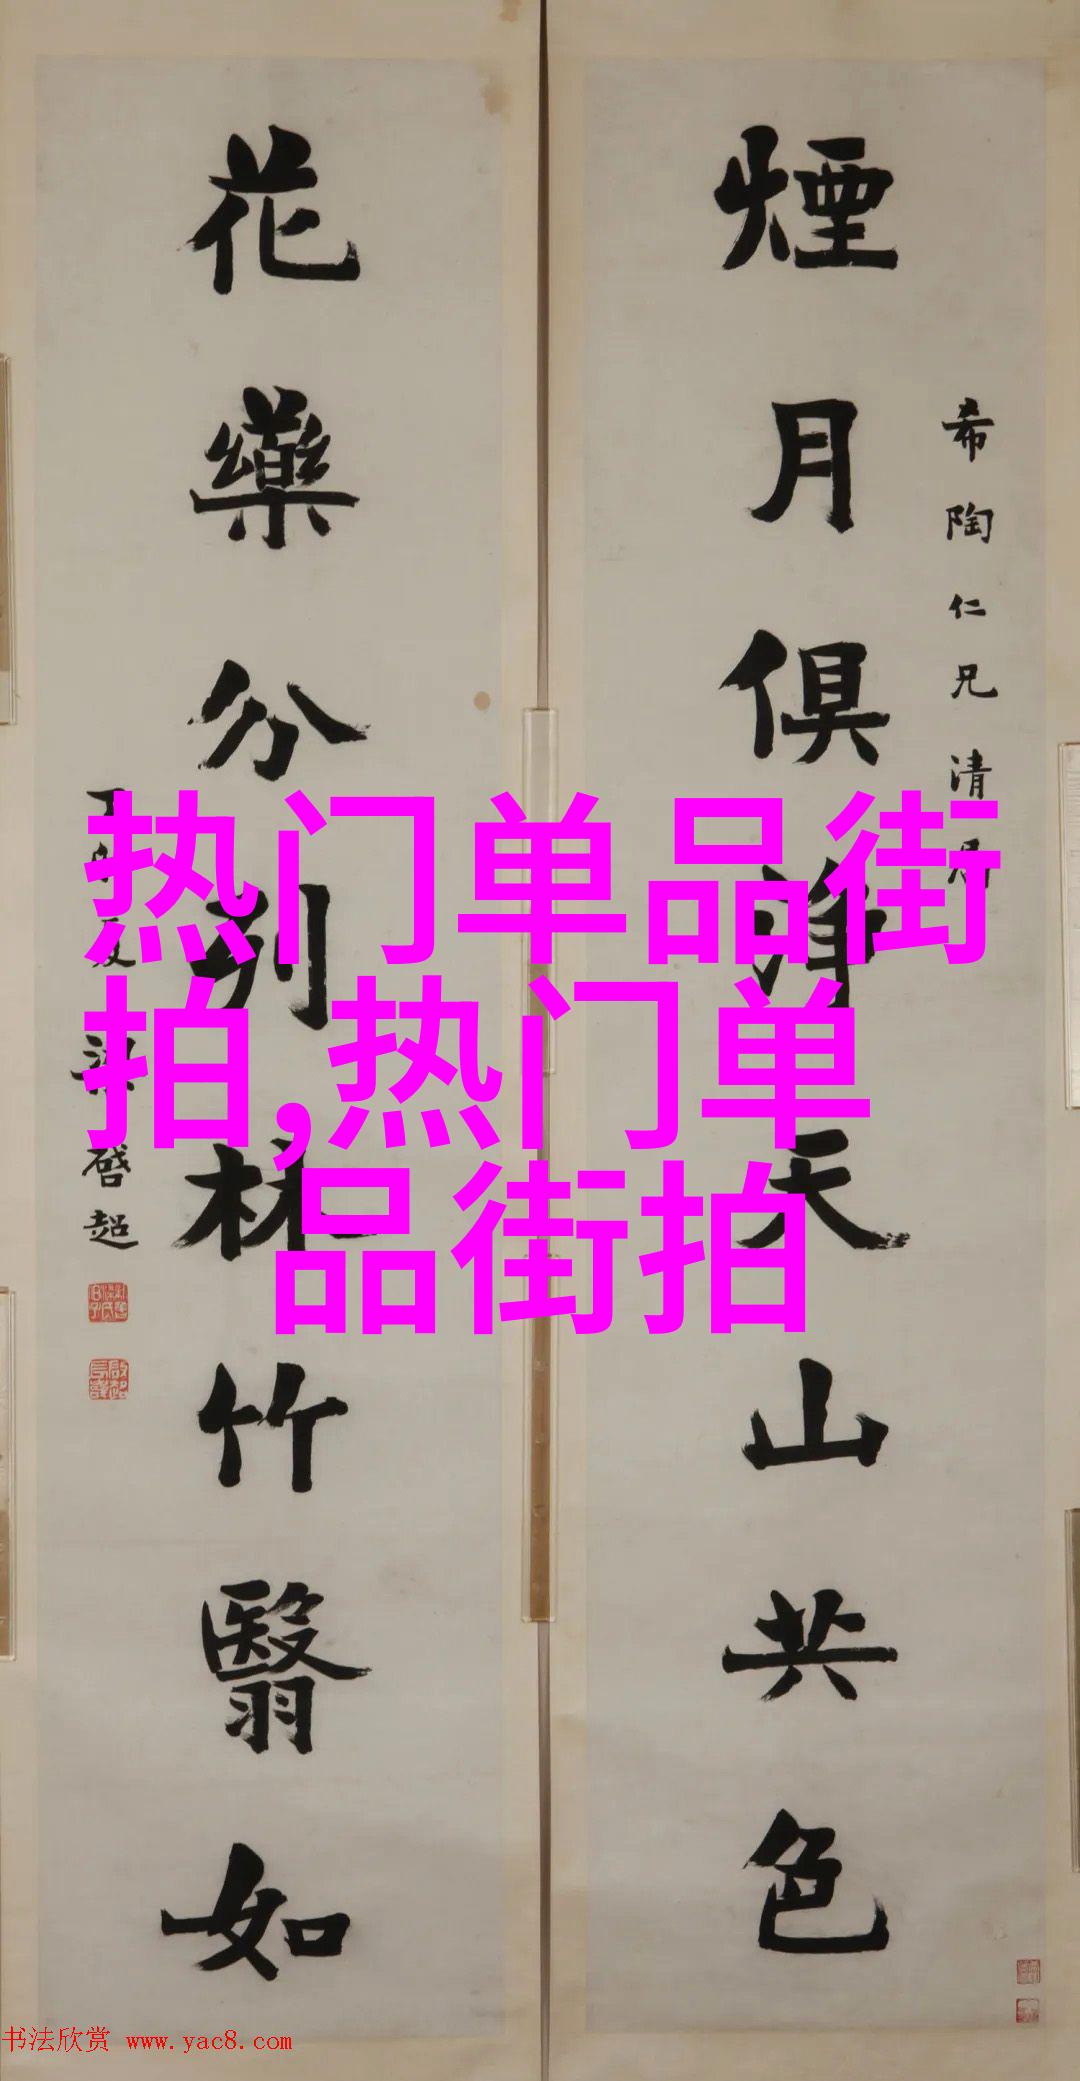 煙月俱淨天山共色
希陶仁兄清屬
花藥分列林竹翳如
梁啓超
热门单品街
拍,热门单
品街拍
书法欣赏 www.yac8.com